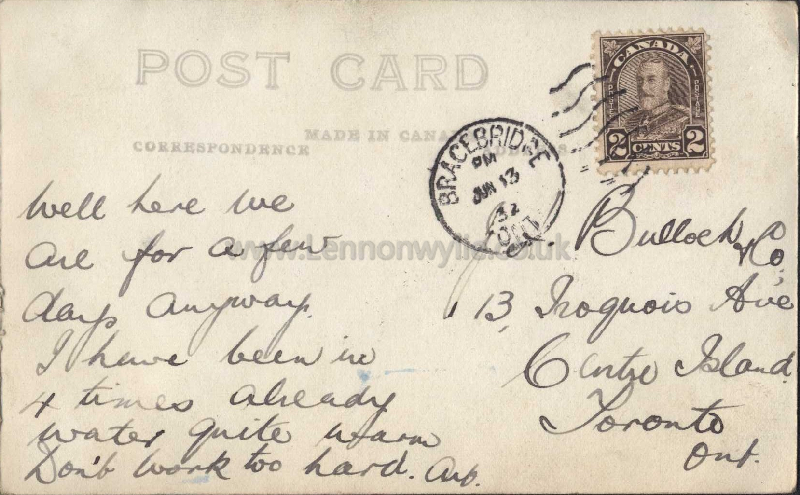 POST CARD
MADE IN CANADA
CORRESPONDENCE
ADDRESS
CANADA
POSTES POSTAGE
2 CENTS 2
BRACEBRIDGE
PM
JUN 13
32
ONT.
www.Lennonwylie.co.uk
Well here we
are for a few
days anyway.
I have been in
4 times already
water quite warm
Don't work too hard.
Bullock & Co.
13, Iroquois Ave
Centre Island
Toronto
Ont.